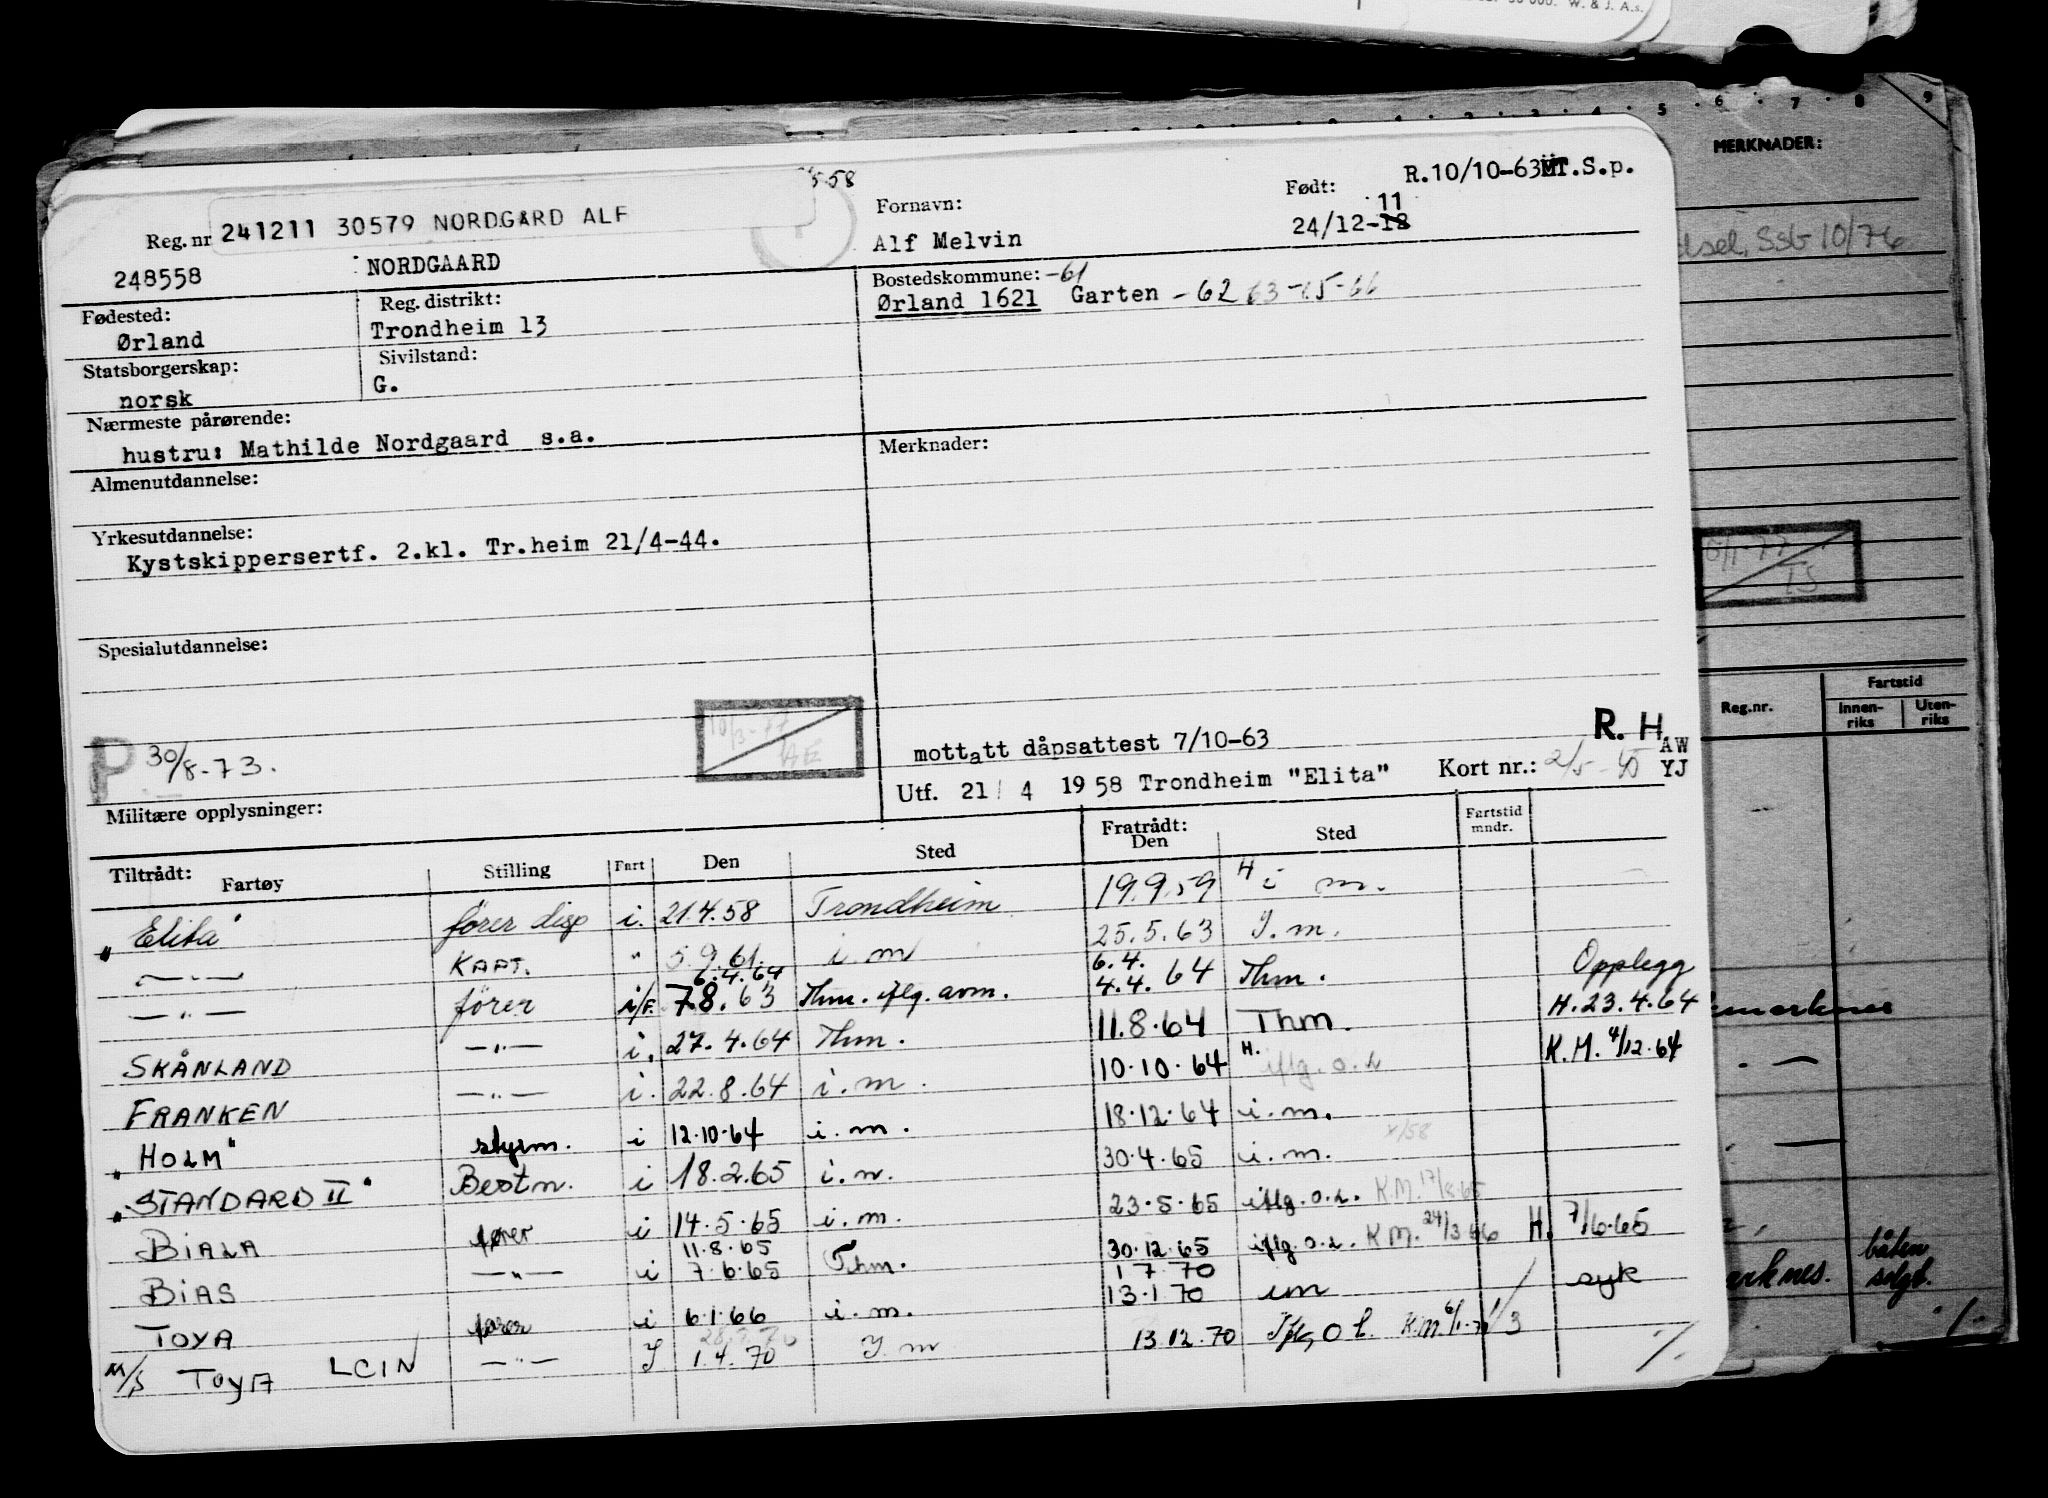 30 000. W. & J. A.s.
5 6 7 8 9
MERKNADER:
10/76
Reg.nr. Fartstid
Innen-riks Uten-riks
båten
solgt.
58
R.10/10-63 T.S.p.
Reg.nr 241211 30579 NORDGARD ALF
Fornavn: Født:
11
248558 NORDGAARD Alf Melvin 24/12-18
Fødested: Reg. distrikt: Bostedskommune: -61
Ørland Trondheim 13 Ørland 1621 Garten -62 63-65-66
Statsborgerskap: Sivilstand:
norsk G.
Nærmeste pårørende: Merknader:
hustru: Mathilde Nordgaard s.a.
Almenutdannelse:
Yrkesutdannelse:
Kystskippersertf. 2.kl. Tr.heim 21/4-44.
Spesialutdannelse:
10/3-77
R. H
P 30/8-73. mottatt dåpsattest 7/10-63 AW
Militære opplysninger: Utf. 21/ 4 1958 Trondheim "Elita" Kort nr.: YJ
Tiltrådt: Fratrådt: Fartstid mndr.
Fartøy Stilling Fart Den Sted Den Sted
"Elita" fører disp i. 21.4.58 Trondheim 19.9.59 H i m.
—"— KAPT. " 5.9.61. i.m 25.5.63 I.m.
6.4.64 6.4. Opplegg
—"— fører i/F. 7.8.63 Thm. iflg. avm. 4.4.64 Thm. H.23.4.64
SKÅNLAND —"— i. 27.4.64 Thm. 11.8.64 Thm.
FRANKEN —"— i. 22.8.64 i.m. 10.10.64 H. iflg. o.l. K.M. 4/12.64
"HOLM" styrm. i 12.10.64 i.m. 18.12.64 i.m.
"STANDARD II" Bestm. i 18.2.65 i.m. 30.4.65 i.m.
BIALA fører i 14.5.65 i.m. 23.5.65 iflg. o.l. K.M. 17/8.65
11.8.65
BIAS —"— i 7.6.65 Thm. 30.12.65 iflg. o.l. K.M. 24/3 66 H. 7/6.65
1 7 70
TOYA fører i 6.1.66 i.m. 13.1.70 im syk
M/S TOYA LCIN —"— I 1.4.70 I.m 13.12.70 Iflg O l. K.M. 1/3